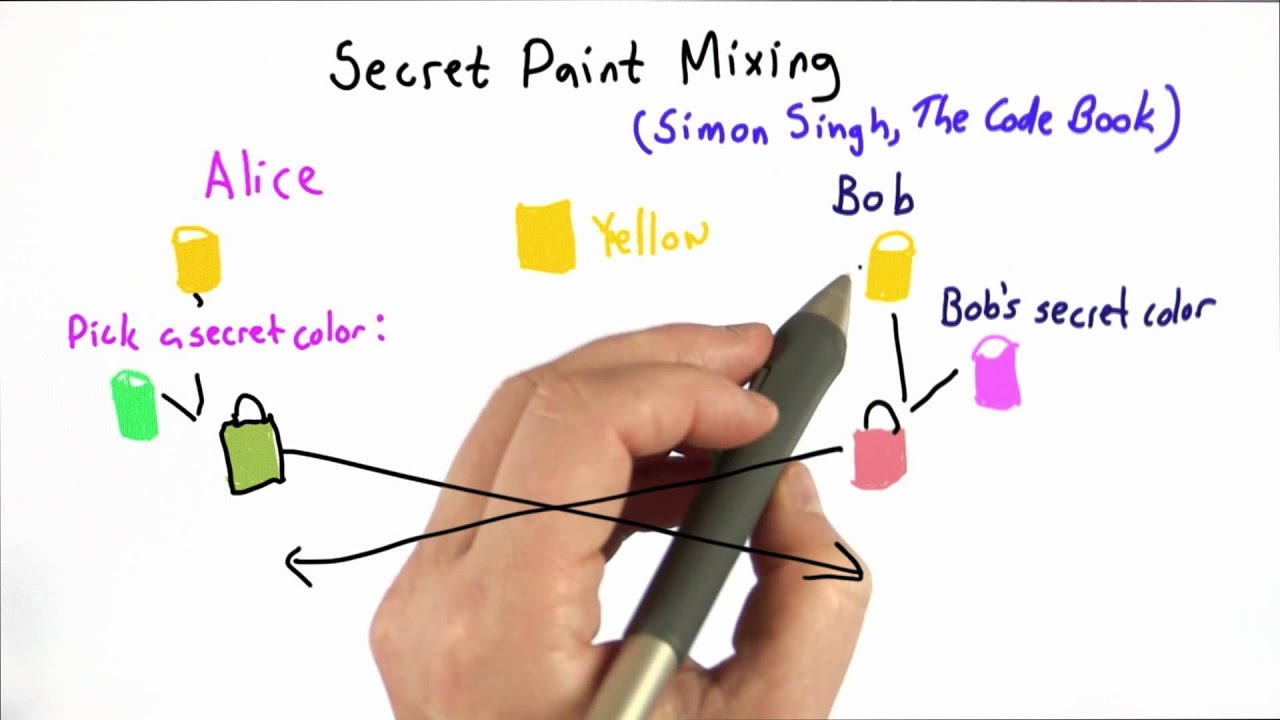 Secret Paint Mixing
(Simon Singh, The Code Book)
Alice
Bob
Yellow
Pick a secret color:
Bob's secret color